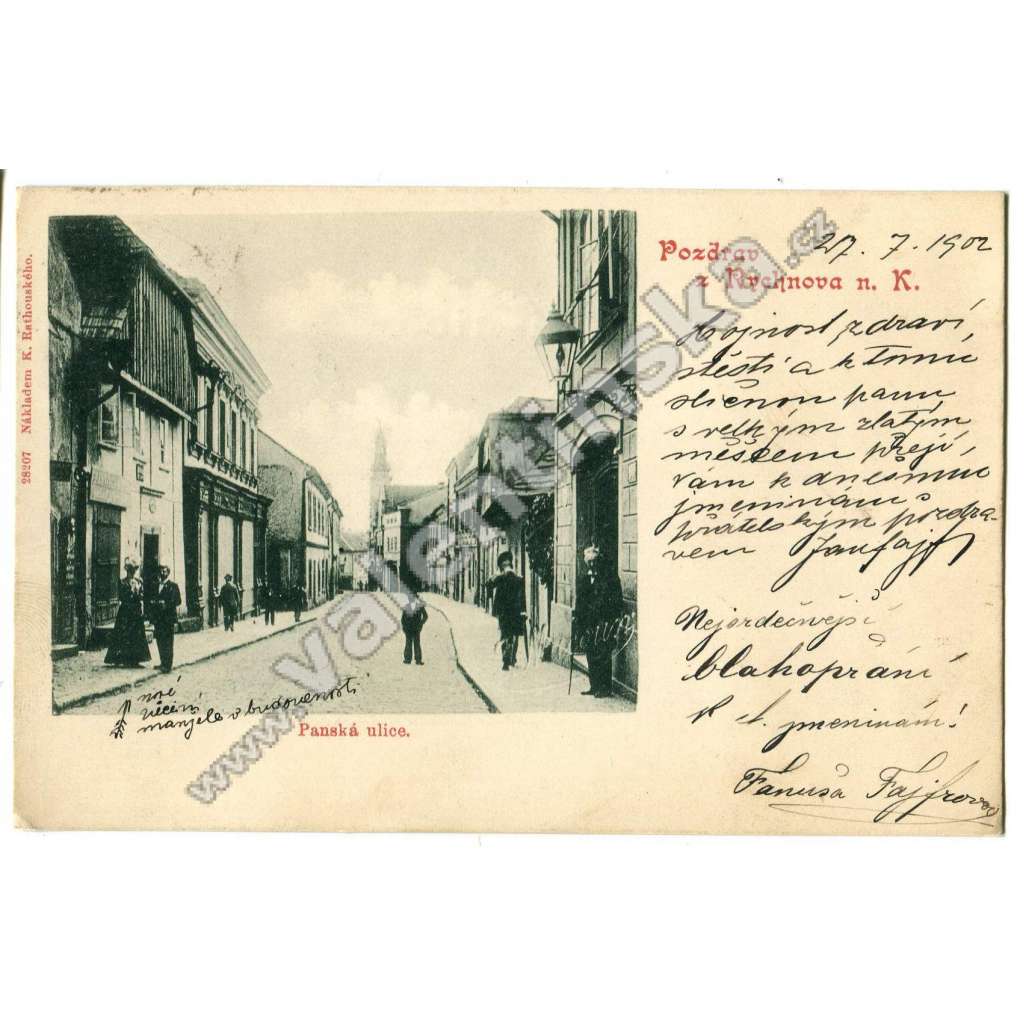 28207 Nákladem K. Rathouského.
Pozdrav
z Rychnova n. K.
27. 7. 1902
Hojnost zdraví,
štěstí a k tomu
sličnou paní
s velkým zlatým
měšcem přejí
Vám k dnešním
jmeninám s
přátelským pozdra-
vem
Nejsrdečnější
blahopřání
K jmeninám!
Fanuša Fajfrova
nové
manžele v budoucnosti
Panská ulice.
www.valentinska.cz